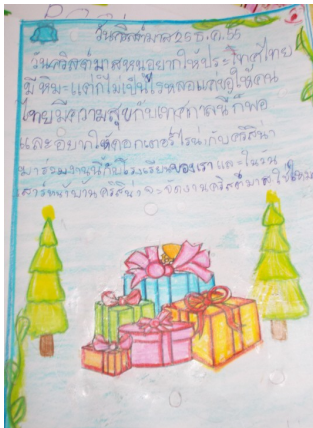 วันคริสต์มาส 25 ธ.ค. 55
วันคริสต์มาสหนูอยากให้ประเทศไทย
มีหิมะแต่ถ้าไม่เป็นไรหลอกแค่ขอให้คน
ไทยมีความสุขกับเทศกาลนี้ก็พอ
และอยากให้ดอกเตอร์ไรน่ากับคริสน่า
มาร่วมงานนี้กับโรงเรียนของเรา และในวัน
คริสน่าจะจัดงานคริสต์มาส